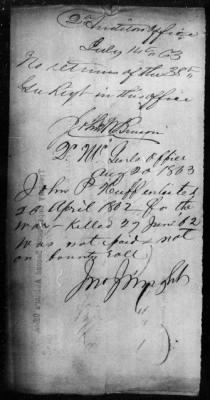 2d Auditors Office
July 14th 63
No returns of the 38th
Ga Regt in this office
Qr Mr Genls Office
Aug 20 1863
John P Huff enlisted
20 April 1862 for the
War - Killed 27 June '62
Was not paid & not
on bounty roll
Jno J Wright